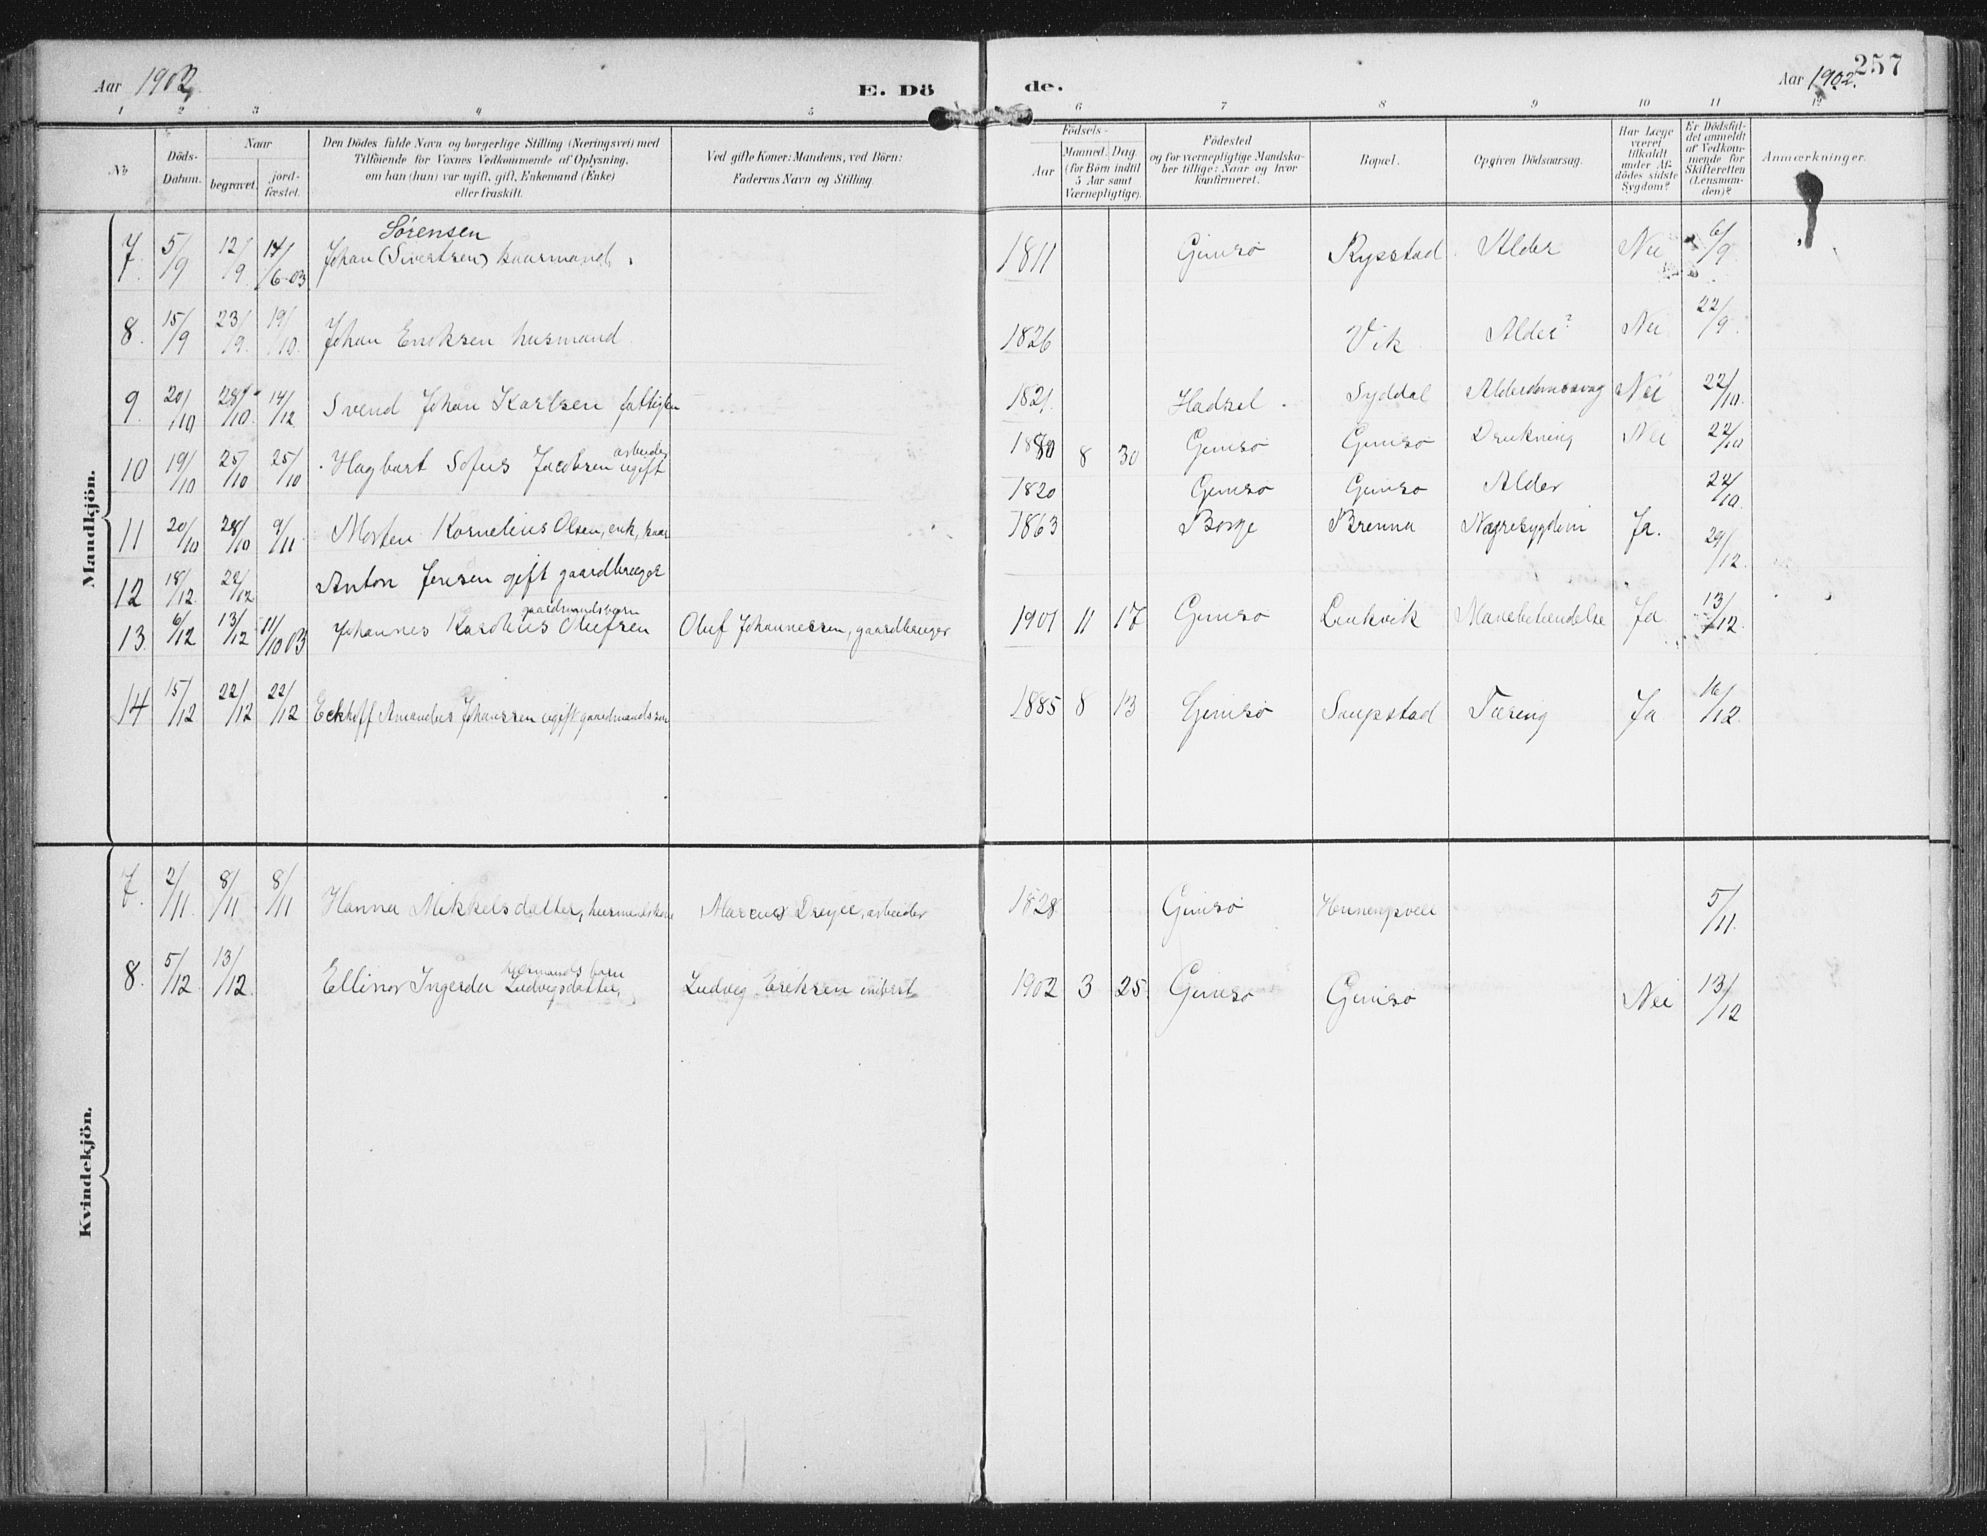 Aar 1902. E. Dö de. Aar 1902. 257
1 2 3 4 5 6 7 8 9 10 11 12
No
Döds-Datum.
Naar
begravet. jord-fæstet.
Den Dödes fulde Navn og borgerlige Stilling (Næringsvei) med
Tilföiende for Voxnes Vedkommende af Oplysning,
om han (hun) var ugift, gift, Enkemand (Enke)
eller fraskilt.
Ved gifte Koner: Mandens, ved Börn:
Faderens Navn og Stilling.
Födsels-
Aar Maaned. Dag.
(for Börn indtil 5 Aar samt Værnepligtige).
Födested
og for værnepligtige Mandska-
ber tillige: Naar og hvor
konfirmeret.
Bopæl.
Opgiven Dödsaarsag.
Har Læge været tilkaldt under Af-dödes sidste Sygdom?
Er Dödsfal-det anmeldt af Vedkom-mende for Skifteretten (Lensman-den)?
Anmærkninger.
Mandkjön.
Sörensen
7. 5/9 12/9 14/6-03 Johan (Sivertsen) kaarmand. 1811 Gimsø Rystad Alder Nei 6/9
8. 15/9 23/9 19/10 Johan Eriksen husmand 1826 Vik Alder? Nei 22/9
9. 20/10 28/10 14/12 Svend Johan Karlsen fattiglem 1821. Hadsel. Syddal Nei 22/10
10 19/10 25/10 25/10 Hagbart Sofus Jacobsen arbeider ugift 1880 8 30 Gimsø Gimsø Drukning Nei 22/10
11 20/10 28/10 9/11 Morten Kornelius Olsen, enk, kaar 1820 Gimsø Gimsø Alder 22/10
12 18/12 22/12 Anton Jensen gift gaardbruger 1863 Borge Brenna Ja. 29/12
gaardmandsbarn
13 6/12 13/12 11/10 03 Johannes Olufsen Oluf Johannessen, gaardbruger 1901 11 17 Gimsø Ja 13/12
14 15/12 22/12 22/12 Eckhoff Amandus Johanssen ugift gaardmandssøn 1885 8 13 Gimsø Saupstad Tæring Ja 16/12
Kvindekjön.
7. 2/11 8/11 8/11 Hanna Mikkelsdatter, husmandskone Marcus Dreyer, arbeider 1828 Gimsø 5/11
husmands barn
8. 5/12 13/12 Ellinor Ingerda Ludvigsdatter, Ludvig Eriksen 1902 3 25 Gimsø Gimsø Nei 13/12